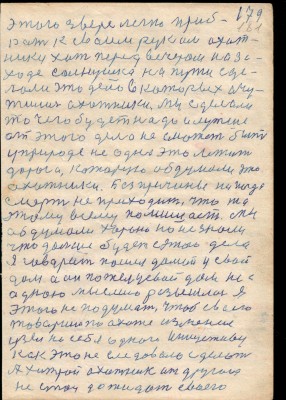 179
181
этого звере легко приб-
рат к своим рукам охот-
ники хот перед вечером на за-
ходе солнушка на пути сде-
лали это дело в которых очу-
тилис охотники. Мы сделали
то чего будет надо и лутше
от этого дела не сможет быть
у природе не одна это лежит
дорога, которую обдумали эти
охотники. Без причины никогда
смерть не приходит, что то
этому всему помещает. Мы
обдумали харошо но не знали
что дальше будет с этого дела
Я говорит пошел домой у свой
дом а он пожелу свой дом не с
одною мыслею разошлис Я
этого не подумал чтоб своего
товарища по охоте
взял на себя одного инициативу
как это не следовало сделать
А хитрой охотник ат другого
не стал дожидат своего